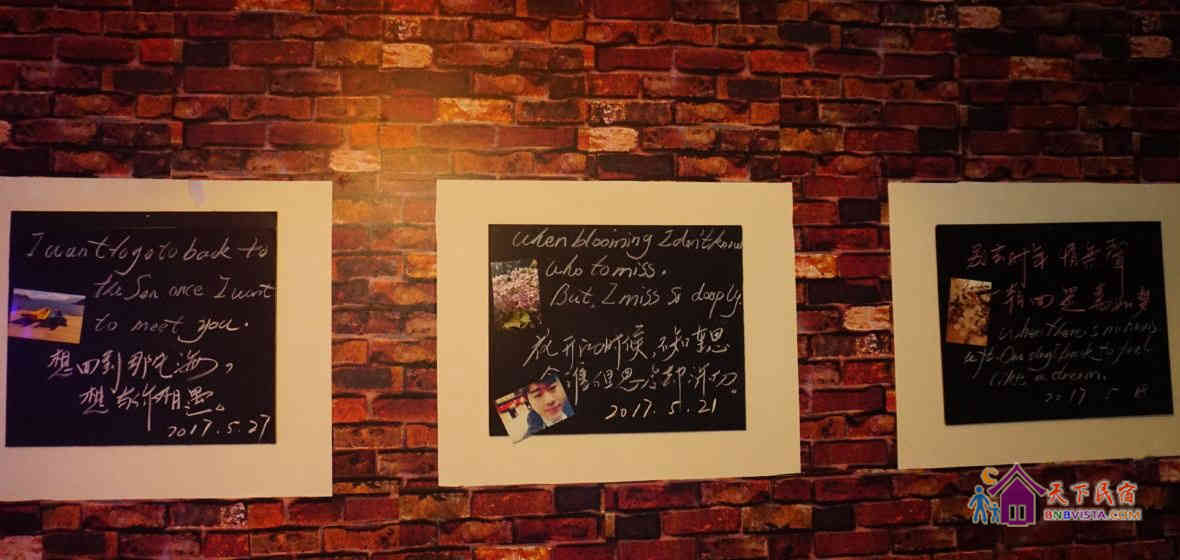 I want to go to back to
the Sea once I want
to meet you.
想回到那片海,
想与你相遇。
2017.5.27
when blooming I don't know
who to miss.
But, I miss so deeply.
花开的时候,不知要思
念谁但思念却深切。
2017.5.21
情無聲
一
when there is nothing
left. One day back to feel
like a dream.
2017 5 18
天下民宿
BNBVISTA.COM